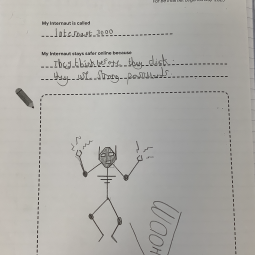 My Internaut is called
Internaut 3000
My Internaut stays safer online because
they think before they click
they use strong passwords
WOOH